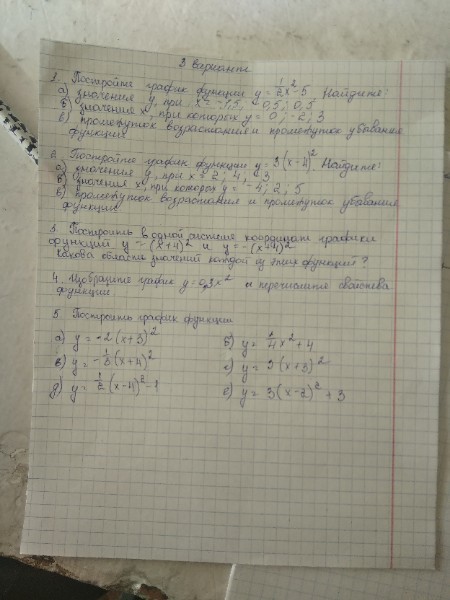 3 вариант
1. Постройте график функции y = 1/2 x² - 5 Найдите:
а) значения y, при x = -1,5; 0,5; 0,5
б) значения x, при которых y = 0; -2; 3
в) промежуток возрастания и промежуток убывания
функции
2. Постройте график функции y = 3(x-4)² Найдите:
а) значения y, при x = 2; 4; -3
б) значения x, при которых y = -4; 2; 5
в) промежуток возрастания и промежуток убывания
функции
3. Построить в одной системе координат графики
функций y = (x+4)² и y = -(x+4)²
Какова область значений каждой из этих функций?
4. Изобразите график y = 0,3x² и перечислите свойства
функции
5. Построить график функции
а) y = -2(x+3)² б) y = 1/4 x² + 4
в) y = -1/3(x+4)² г) y = 3(x+3)²
д) y = 1/2(x-4)² - 1 е) y = 3(x-2)² + 3